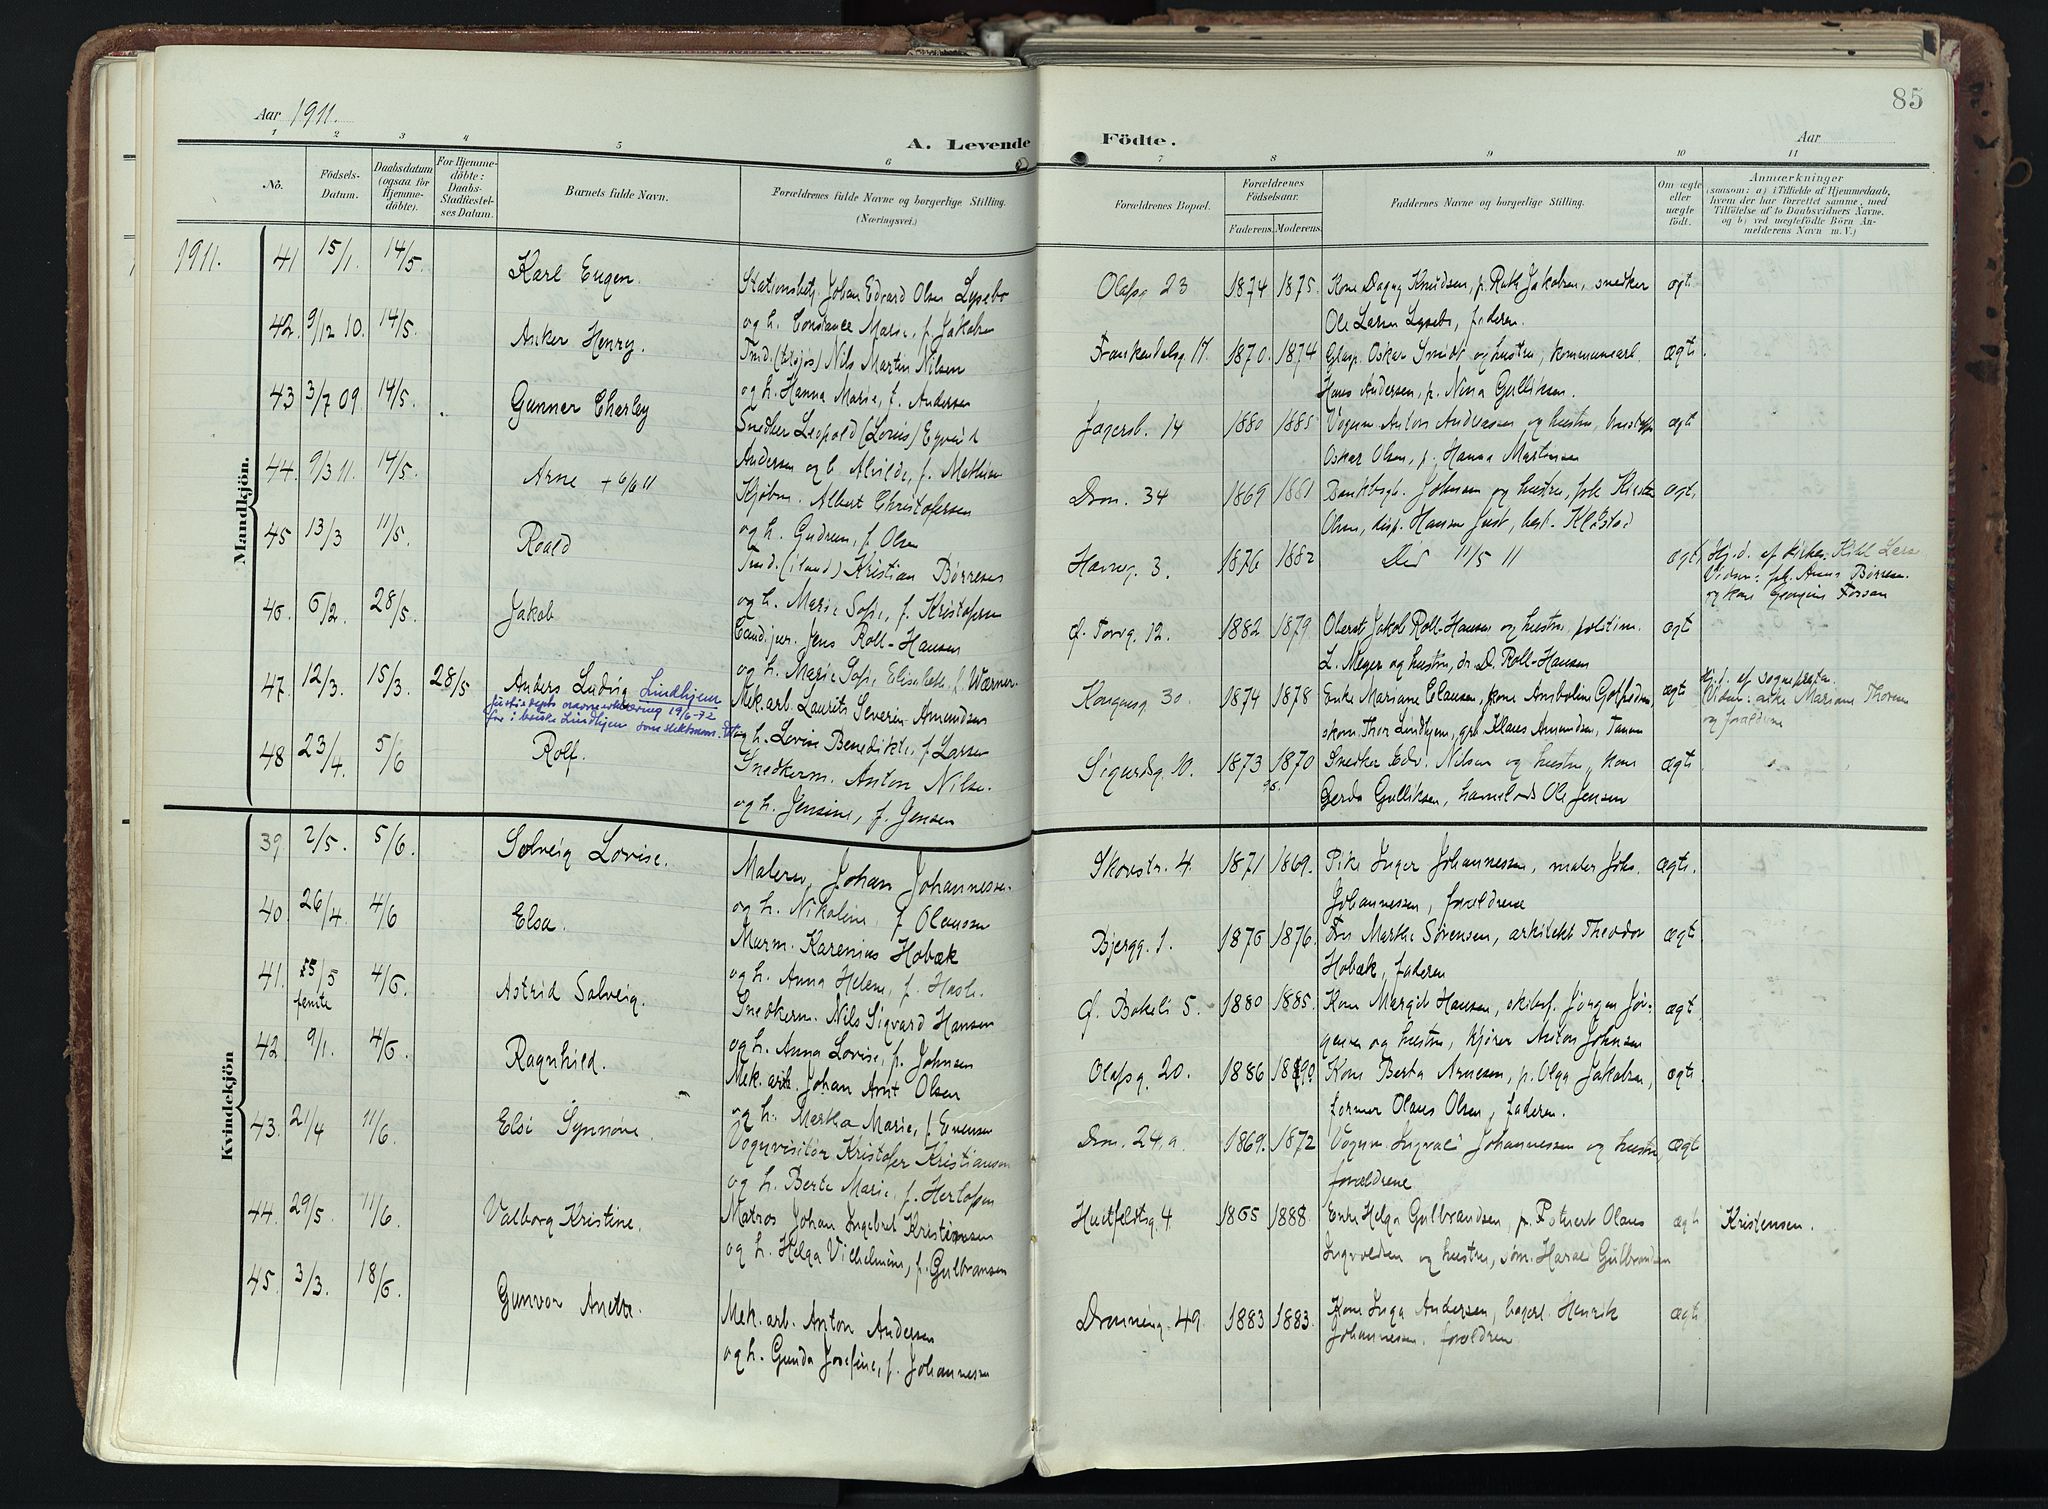 85
Aar 1911.
Aar
A. Levende Födte.
1 2 3 4 5 6 7 8 9 10 11
No.
Födsels-Datum.
Daabsdatum (ogsaa for Hjemme-döbte).
For Hjemme-döbte: Daabs-Stadfæstel-ses Datum.
Barnets fulde Navn.
Forældrenes fulde Navne og borgerlige Stilling.
(Næringsvei.)
Forældrenes Bopæl.
Forældrenes Födselsaar.
Faderens. Moderens.
Faddernes Navne og borgerlige Stilling.
Om ægte eller uægte født.
Anmærkninger
(saasom: a) i Tilfælde af Hjemmedaab,
hvem der har forrettet samme, med
Tilföielse af to Daabsvidners Navne.
og b) ved uægtefödte Börn An-
melderens Navn m. V.)
1911.
Mandkjön.
41 15/1. 14/5. Karl Eugen Stationsbetj. Johan Edvard Olsen Lysebo Olafsg 23 1874 1875. Kone Dagny Knudsen, p. Ruth Jakobsen, snedker ægt
og h. Constance Marie, f. Jakobsen Ole Larsen Lysebo, faderen.
42. 9/12 10. 14/5. Anker Henry. Tmd. (tilsjøs) Nils Martin Nilsen Frankendalsg. 17. 1870. 1874 Oskar Smidt og hustru, kommunearb. ægte
og h. Hanna Marie, f. Andersen Hans Andersen, p. Nina Gulliksen.
43 3/7 09 14/5. Gunner Charley Snedker Leopold (Louis) Eyvind Jegersb. 14 1880 1885 Vognm. Anton Andreassen og hustru, ægt
Andersen og h. Alvilde, f. Mathisen Oskar Olsen, p. Hanna Martinsen
44. 9/3 11. 14/5. Arne + 6/6 11 Kjøbm. Albert Christofersen Dron. 34 1869 1881 Bankbogh. Johnsen og hustru, frk Kirsten ægt.
og h. Gudrun, f. Olsen Olsen, disp. Hansen Just, best. Klåstad
45 13/3 11/5. Roald Tmd. (iland) Kristian Børresen Havneg. 3. 1876 1882 Død 11/5 11 ægt. Hj. d. af Kihl
og h. Marie Sofie, f. Kristofersen Vidner: frk. Anna Børresen.
og kone Georgine
46. 6/2. 28/5. Jakob Cand. jur. Jens Roll-Hansen Ø. Torvg. 12. 1882 1879. Oberst Jakob Roll-Hansen og hustru, politim. ægt
og h. Marie Sofie Elisabeth, f. Wærner. L. Meyer og hustru, dr. D. Roll-Hansen
47. 12/3. 15/3. 28/5 Anders Ludvig Lindhjem Mek. arb. Laurits Severin Amundsen Kongensg. 30. 1874 1878 Enke Mariane Clausen, kone Ansboline Gotfredsen, ægt Hj. d. af sogneprsten.
og h. Lovise Benedikte, f. Larsen skom. Thor Lindhjem, grb. Klaus Amundsen, Vidner: enke Mariane
og forældrene
48 23/4. 5/6 Rolf. Snedkerm. Anton Nilsen Sigurdsg. 10. 1873 1870 Snedker Edv. Nilsen og hustru, kone ægte
og h. Jensine, f. Jensen Gerda Gulliksen, havnelods Ole Jensen
Kvindekjön
39 2/5. 5/6. Solveig Lovise. Malerm. Johan Johannessen Skovstr. 4. 1871 1869. Pike Inger Johannessen, maler Johs. ægte.
og h. Nikoline, f. Olaussen Johannessen, forældrene
40. 26/4. 4/6 Elsa. Murm. Karenius Hobæk Bjergg. 1. 1875 1876. Frk Marthe Sørensen, arkitekt Theodor ægt.
og h. Anna Helene, f. Hobæk, faderen
41. 5/5 femte 4/6. Astrid Solveig. Snedkerm. Nils Sigvard Hansen Ø. Bakeli 5. 1880 1885. Kone Margit Hansen, skibsf. Jørgen Jør- ægt
og h. Anna Lovise, f. Johnsen gensen og hustru, kjører Anton Johnsen
42 9/1. 4/6 Ragnhild. Mek. arb. Johan Arnt Olsen Olafsg. 20. 1886 1890. Kone Berta Arnesen, p. Olga Jakobsen, ægt.
og h. Martha Marie, f. Evensen former Olaus Olsen, faderen.
43. 21/4 11/6. Elsi Synnøve. Vognvisitør Kristofer Kristiansen Dron. 24,a 1869. 1872 Vognm Ingvald Johannessen og hustru, ægt
og h. Berte Marie, f. forældrene
44. 29/5. 11/6. Valborg Kristine. Matros Johan Ingebret Kristensen Huitfeldtsg. 4 1865 1888. Enke Helga Gulbrandsen, Olaus ægt Kristensen.
og h. Helga Vilhelmine, f. Gulbransen Ingvolden og hustru, søm. Harald Gulbrandsen
45. 3/3. 18/6. Gunvor Anette. Mek. arb. Anton Andersen Dronning. 49 1883 1883. Kone Inga Andersen, Henrik ægt
og h. Gunda Josefine, f. Johannessen Johannessen, forældrene